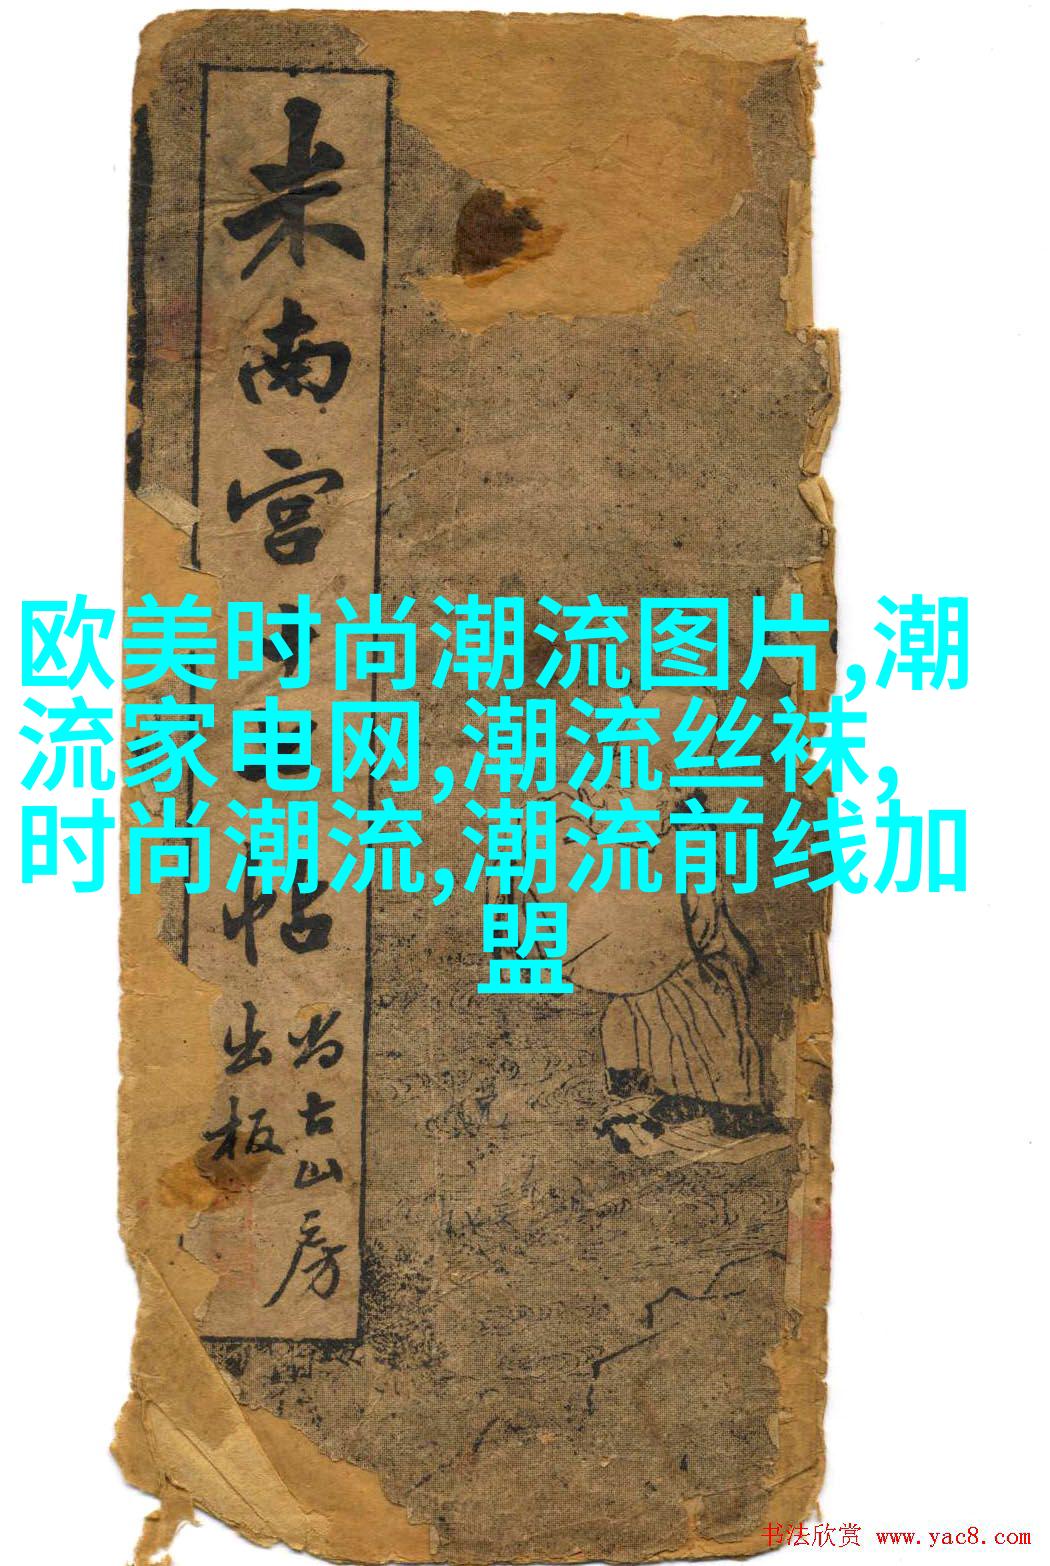 米南宫
帖
尚古山房
出板
欧美时尚潮流图片,潮
流家电网,潮流丝袜,
时尚潮流,潮流前线加
盟
书法欣赏 www.yac8.com